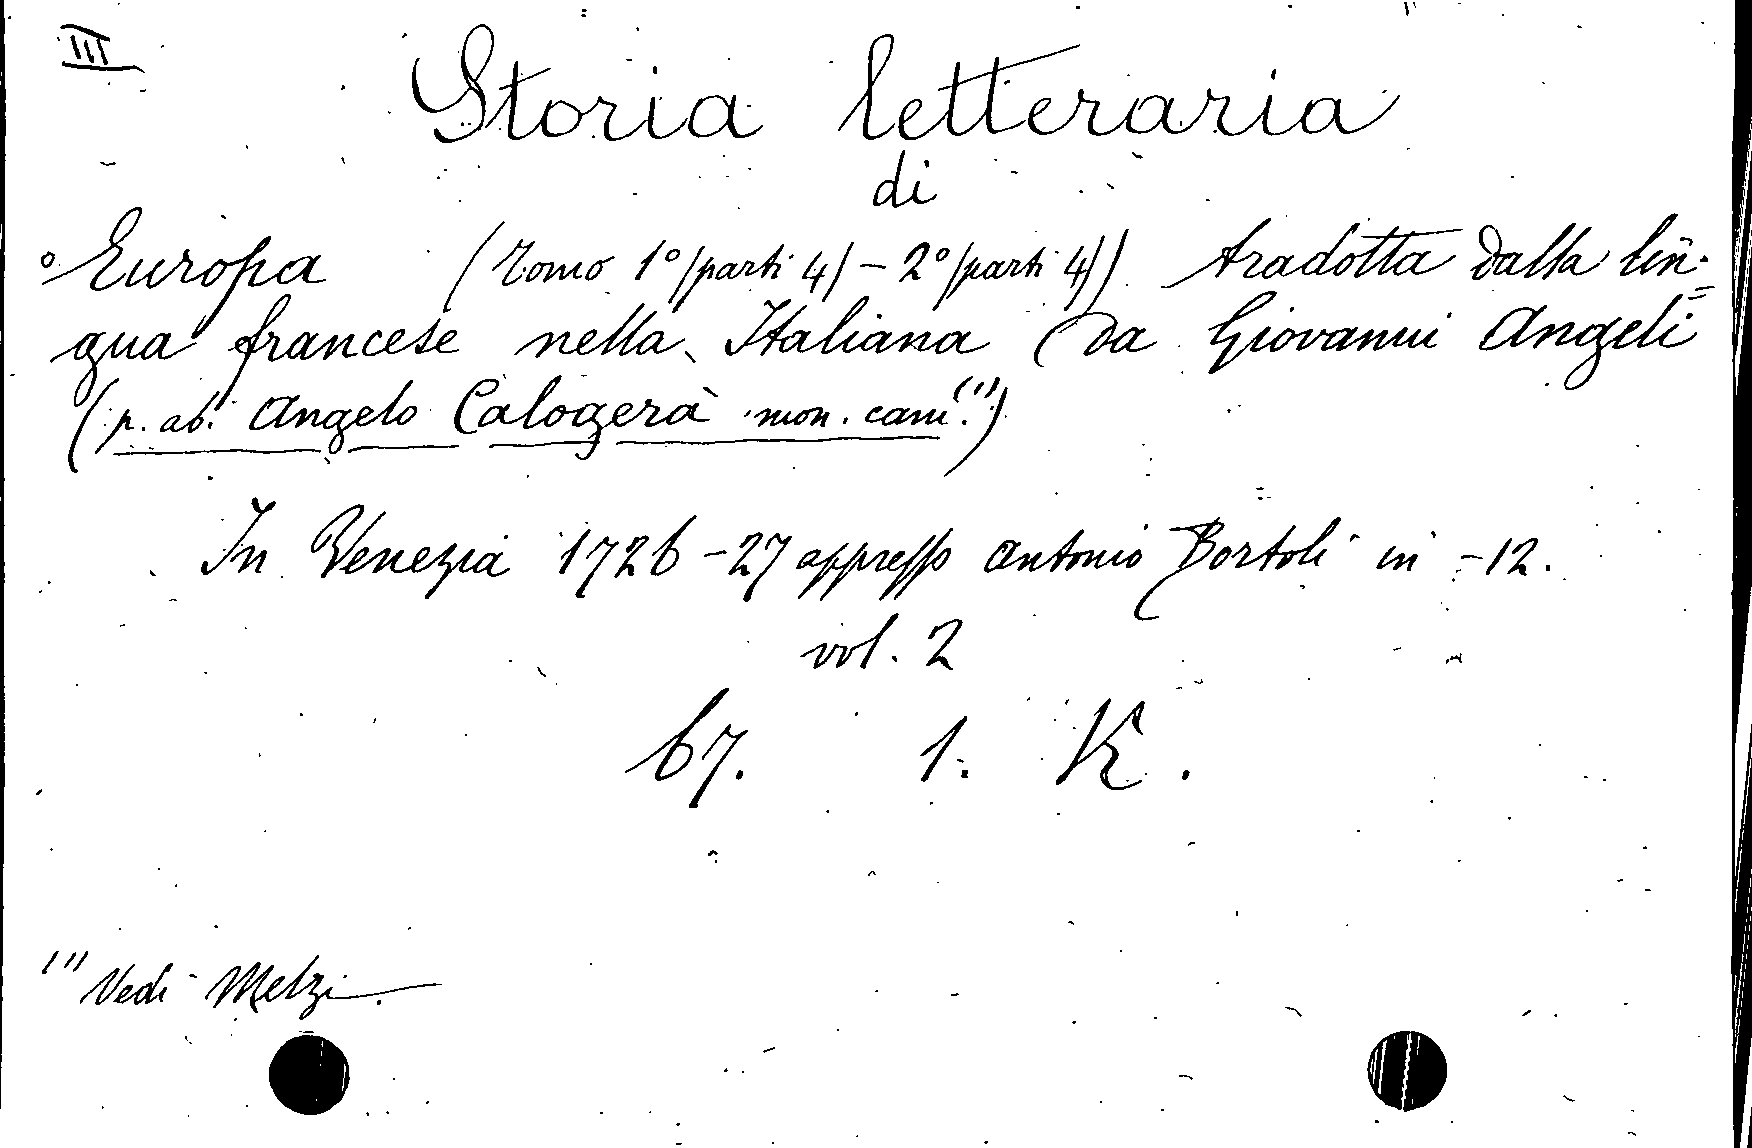 III
Storia letteraria
di
° Europa (Tomo 1° (parti 4) - 2° (parti 4)) tradotta dalla lin=
gua francese nella Italiana (da Giovanni Angeli
(p. ab. Angelo Calogerà mon. cam.(1))
In Venezia 1726-27 appresso Antonio Bortoli in -12.
vol. 2
67. 1. K.
(1) Vedi Melzi.